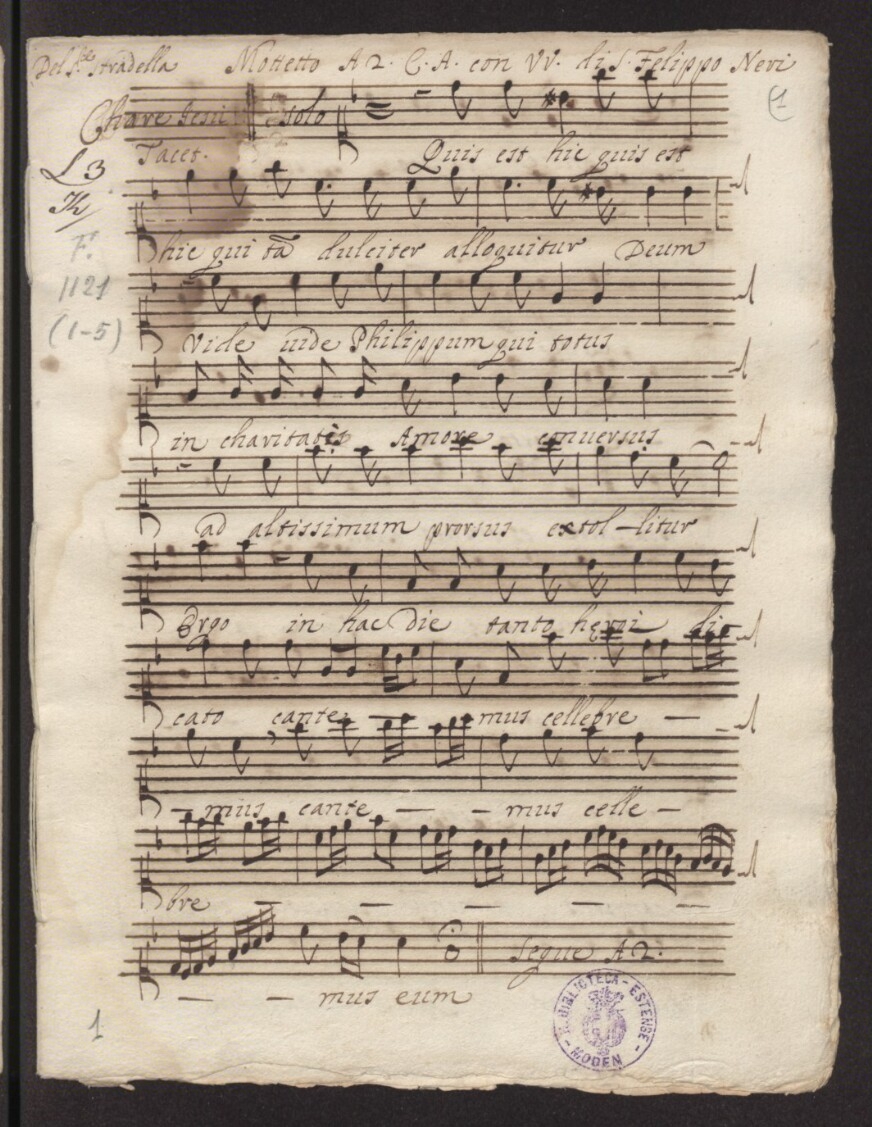 Del S.r Stradella Mottetto A 2. C. A. con VV. di S. Felippo Neri
(1
Chare Iesu solo
Tacet. Quis est hic quis est
L 3
hic qui tã dulciter alloquitur Deum
F.
1121
(1-5)
Vide uide Philippum qui totus
in charitatis Amore conuersus
ad altissimum prorsus extol-litur
Ergo in hac Die tanto heroi di
cato cante - mus cellebre -
- mus cante - - mus celle -
bre - - - -
Segue A 2.
- - mus eum
1
R. BIBLIOTECA - ESTENSE - MODEN